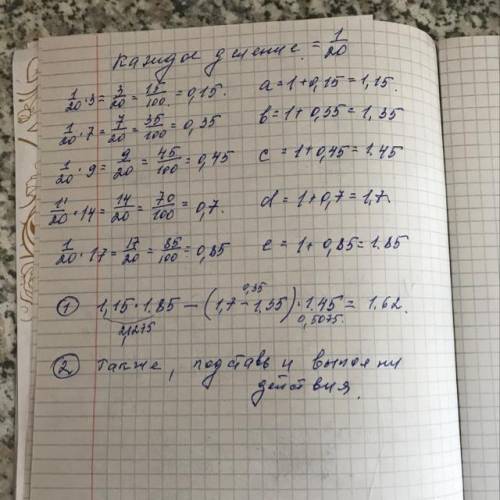 Каждое деление = 1/20
1/20 · 3 = 3/20 = 15/100 = 0,15. a = 1 + 0,15 = 1,15.
1/20 · 7 = 7/20 = 35/100 = 0,35 b = 1 + 0,35 = 1,35
1/20 · 9 = 9/20 = 45/100 = 0,45 c = 1 + 0,45 = 1.45
1/20 · 14 = 14/20 = 70/100 = 0,7. d = 1 + 0,7 = 1,7.
1/20 · 17 = 17/20 = 85/100 = 0,85 e = 1 + 0,85 = 1.85
0,35
① 1,15 · 1.85 − (1,7 − 1.35) · 1.45 = 1.62.
2,1275 0,5075.
② Также, подставь и выполни
действия.